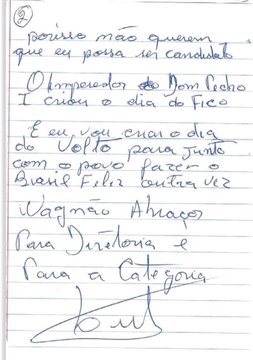 2
porisso não querem
que eu possa ser candidato
O Imperador do Dom Pedro
I criou o dia do Fico
E eu vou criar o dia
do Volto para junto
com o povo fazer o
Brasil Feliz outra vez
Vagnão Abraços
Para Diretoria e
Para a Categoria